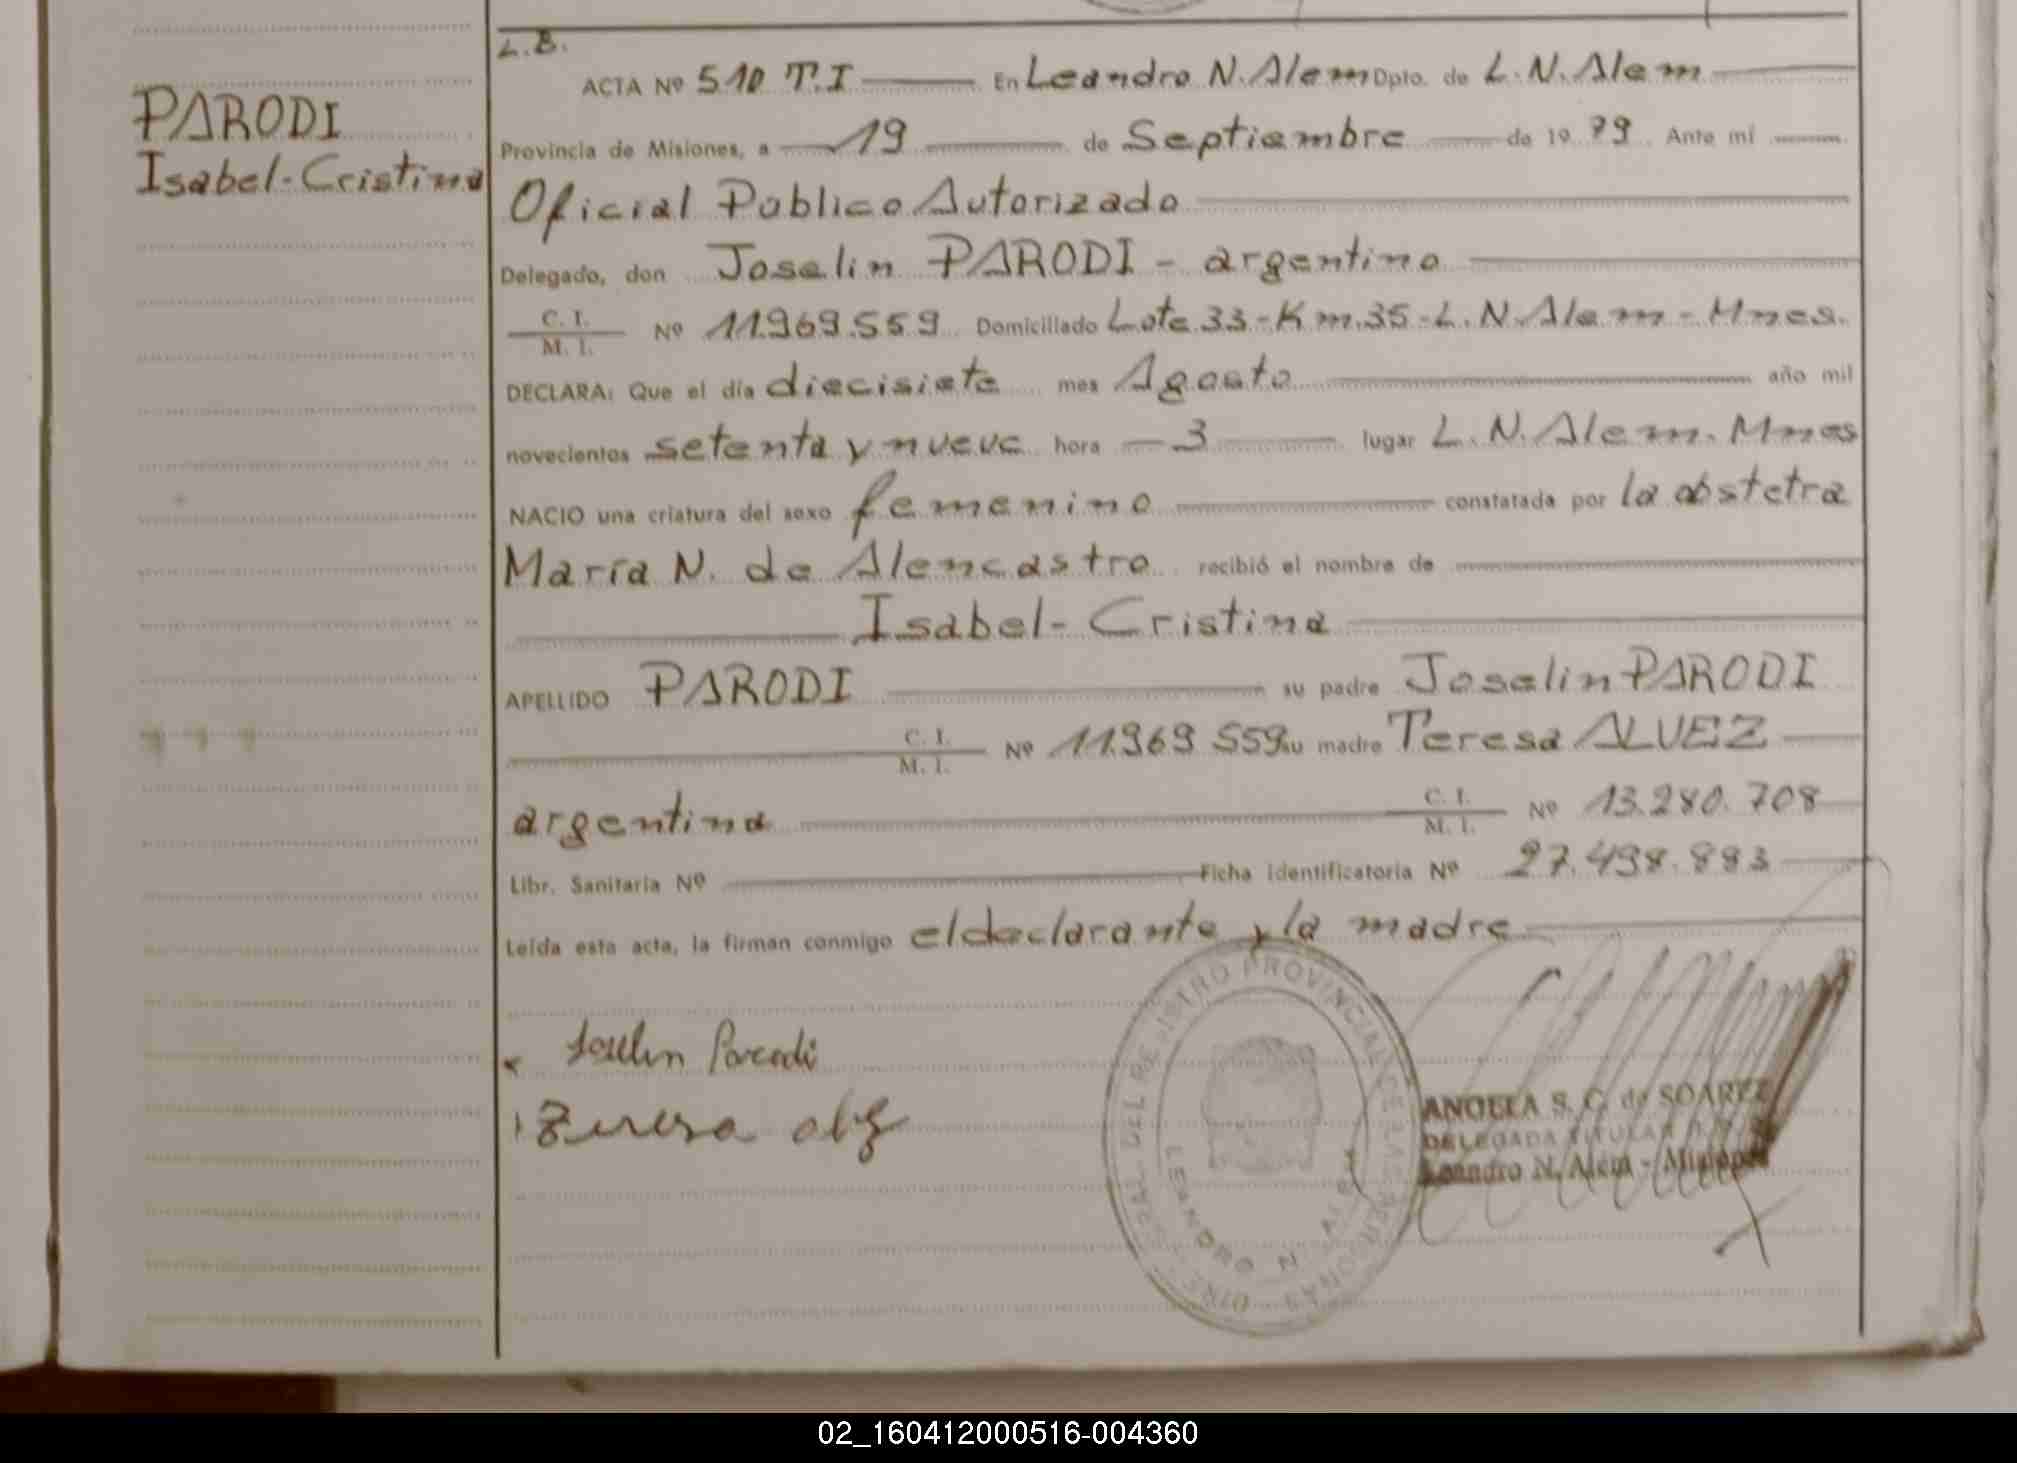 PARODI
Isabel-Cristina
L.B.
ACTA Nº 510 T.I En Leandro N. Alem Dpto. de L.N. Alem
Provincia de Misiones, a 19 de Septiembre de 19 79. Ante mí
Oficial Publico Autorizado
Delegado, don Joselin PARODI - argentino
C. I.
M. I. Nº 11.969.559 Domiciliado Lote 33-Km.35-L.N.Alem-Mnes.
DECLARA: Que el día diecisiete mes Agosto año mil
novecientos setenta y nueve hora 3 lugar L.N.Alem.Mnes
NACIO una criatura del sexo femenino constatada por la obstetra
María N. de Alencastro recibió el nombre de
Isabel-Cristina
APELLIDO PARODI su padre Joselin PARODI
C. I.
M. I. Nº 11.969 559 su madre Teresa ALVEZ
argentina C. I.
M. I. Nº 13.280.708
Libr. Sanitaria Nº Ficha identificatoria Nº 27.498.883
Leída esta acta, la firman conmigo el declarante y la madre
Joselin Parodi
Teresa
REGISTRO PROVINCIAL DE LAS PERSONAS
LEANDRO N.
ANGELA S. C. de SOAREZ
DELEGADA TITULAR
Leandro N. Alem - Misiones
02_160412000516-004360